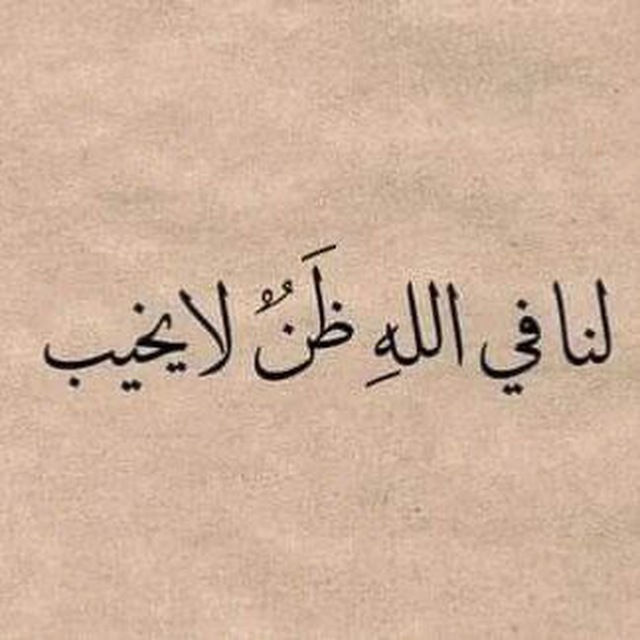 لنا في اللهِ ظَنُُ لا يخيب